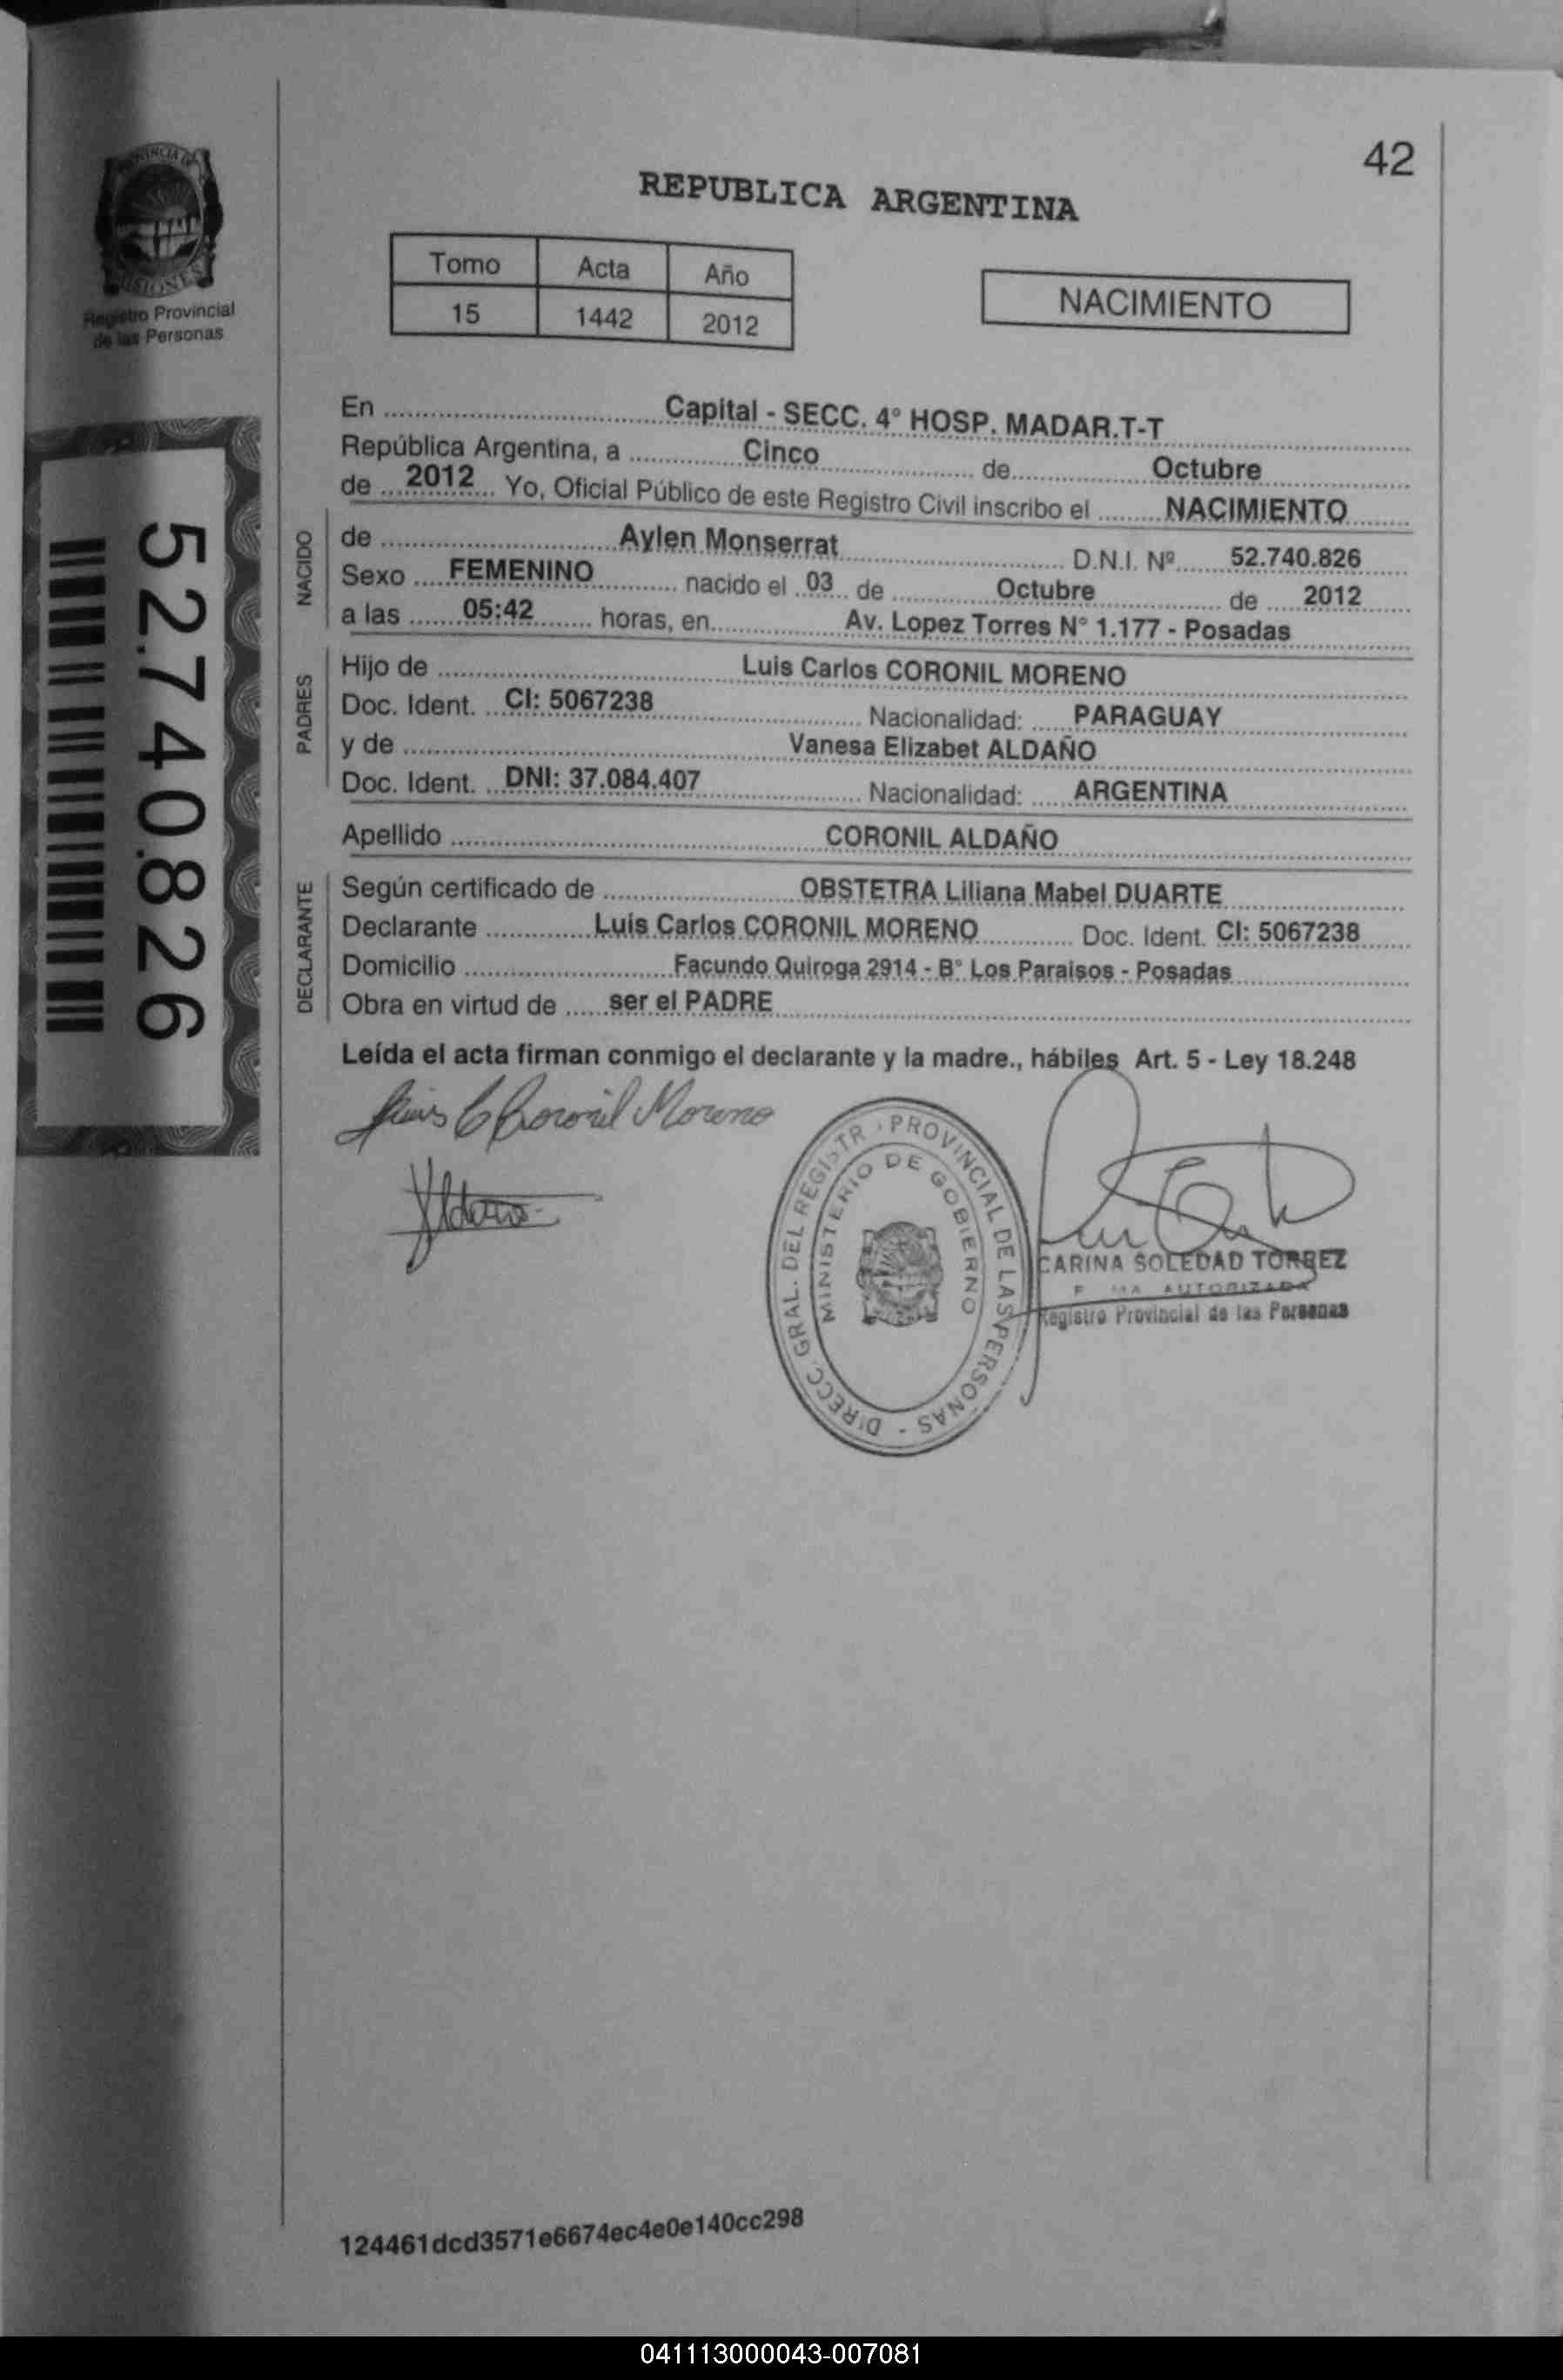 42
REPUBLICA ARGENTINA
PROVINCIA DE
MISIONES
Registro Provincial
de las Personas
Tomo Acta Año
15 1442 2012
NACIMIENTO
52.740.826
En Capital - SECC. 4° HOSP. MADAR.T-T
República Argentina, a Cinco de Octubre
de 2012 Yo, Oficial Público de este Registro Civil inscribo el NACIMIENTO
NACIDO
de Aylen Monserrat D.N.I. Nº 52.740.826
Sexo FEMENINO nacido el 03 de Octubre de 2012
a las 05:42 horas, en Av. Lopez Torres N° 1.177 - Posadas
PADRES
Hijo de Luis Carlos CORONIL MORENO
Doc. Ident. CI: 5067238 Nacionalidad: PARAGUAY
y de Vanesa Elizabet ALDAÑO
Doc. Ident. DNI: 37.084.407 Nacionalidad: ARGENTINA
Apellido CORONIL ALDAÑO
DECLARANTE
Según certificado de OBSTETRA Liliana Mabel DUARTE
Declarante Luis Carlos CORONIL MORENO Doc. Ident. CI: 5067238
Domicilio Facundo Quiroga 2914 - B° Los Paraisos - Posadas
Obra en virtud de ser el PADRE
Leída el acta firman conmigo el declarante y la madre., hábiles Art. 5 - Ley 18.248
Luis C Coronil Moreno
DIRECC. GRAL. DEL REGISTR PROVINCIAL DE LAS PERSONAS -
MINISTERIO DE GOBIERNO
CARINA SOLEDAD TORREZ
AUTORIZADA
Registro Provincial de las Personas
124461dcd3571e6674ec4e0e140cc298
041113000043-007081